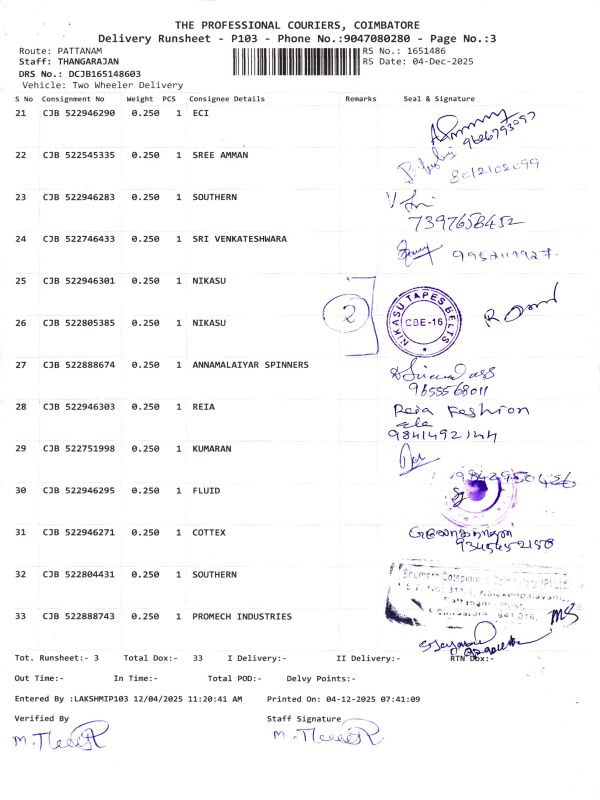 THE PROFESSIONAL COURIERS, COIMBATORE
Delivery Runsheet - P103 - Phone No.:9047080280 - Page No.:3
Route: PATTANAM RS No.: 1651486
Staff: THANGARAJAN RS Date: 04-Dec-2025
DRS No.: DCJB165148603
Vehicle: Two Wheeler Delivery
S No Consignment No Weight PCS Consignee Details Remarks Seal & Signature
21 CJB 522946290 0.250 1 ECI
9626793097
22 CJB 522545335 0.250 1 SREE AMMAN
23 CJB 522946283 0.250 1 SOUTHERN
7397658452
24 CJB 522746433 0.250 1 SRI VENKATESHWARA
25 CJB 522946301 0.250 1 NIKASU
2 NIKASU TAPES BELTS CBE-16
26 CJB 522805385 0.250 1 NIKASU
27 CJB 522888674 0.250 1 ANNAMALAIYAR SPINNERS
9655568011
28 CJB 522946303 0.250 1 REIA Reia Fashion
9841492144
29 CJB 522751998 0.250 1 KUMARAN
30 CJB 522946295 0.250 1 FLUID
31 CJB 522946271 0.250 1 COTTEX
9345452158
32 CJB 522804431 0.250 1 SOUTHERN
33 CJB 522888743 0.250 1 PROMECH INDUSTRIES
Tot. Runsheet:- 3 Total Dox:- 33 I Delivery:- II Delivery:- RTN Dox:-
Out Time:- In Time:- Total POD:- Delvy Points:-
Entered By :LAKSHMIP103 12/04/2025 11:20:41 AM Printed On: 04-12-2025 07:41:09
Verified By Staff Signature